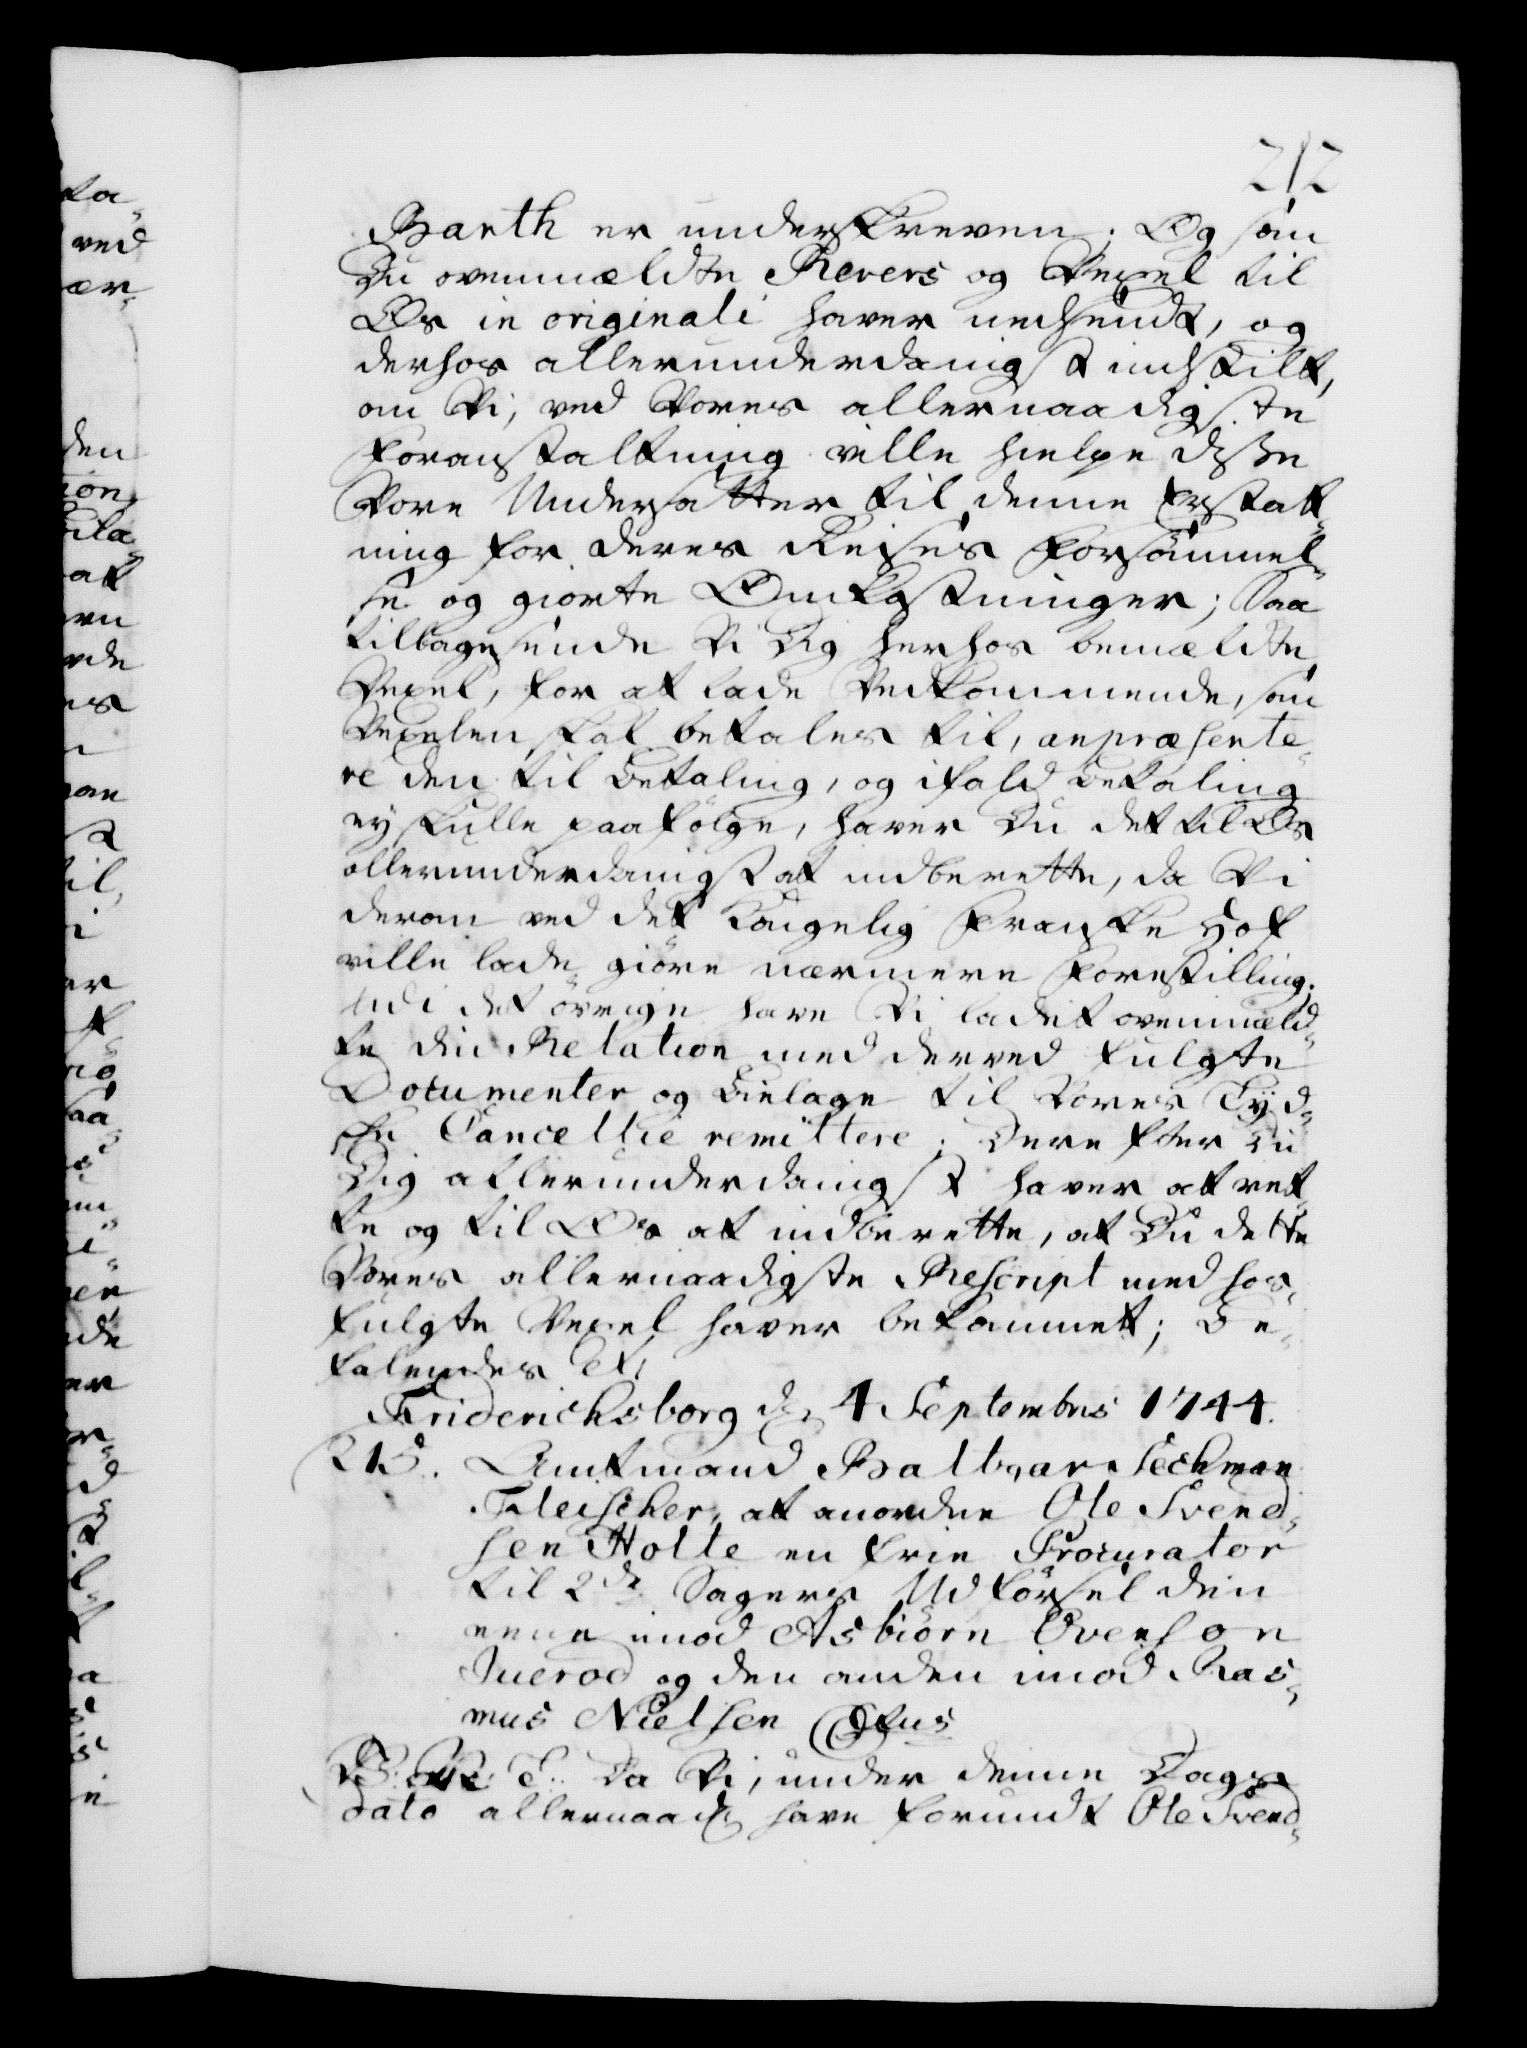 212
Barth er underskreven; Og som
Du ovenmældte Revers og Vexel til
Os in originali haver nedsendt, og
derhos allerunderdanigst indstilt,
om Vi, ved Vores allernaadigste
Foranstaltning ville hielpe disse
Vore Undersatter til denne Erstat-
ning for deres Reises Forsømmel-
se og giorte Omkostninger; Saa
tilbagesende Vi Dig herhos bemældte
Vexel, for at lade Vedkommende, som
Vexelen skal betales til, anpræsente-
re den til Betaling, og ifald Betaling
ey skulle paafølge, haver Du det til Os
allerunderdanigst at indberette, da Vi
derom ved det Kongelig Franske Hof
ville lade giøre nærmere Forestilling.
Udi det øvrige have Vi ladet ovenmæld-
te din Relation med derved fulgte
Documenter og Bielage til Vores Tyd-
ske Cancellie remittere; Derefter Du
Dig allerunderdanigst haver at ret-
te og til Os at indberette, at Du dette
Vores allernaadigste Rescript med hos-
fulgte Vexel haver bekommet; Be-
falendes etc
Friderichsborg d. 4 Septembris 1744.
215. Amtmand Baltzar Sechman
Fleischer, at anordne Ole Svend-
sen Holte en frie Procurator
til 2de Sagers Udførsel den
eene imod Asbiørn Ovenson
Juerod og den anden imod Ras-
mus Nielsen
Da Vi, under denne Dags
dato allernaadst have forundt Ole Svend-